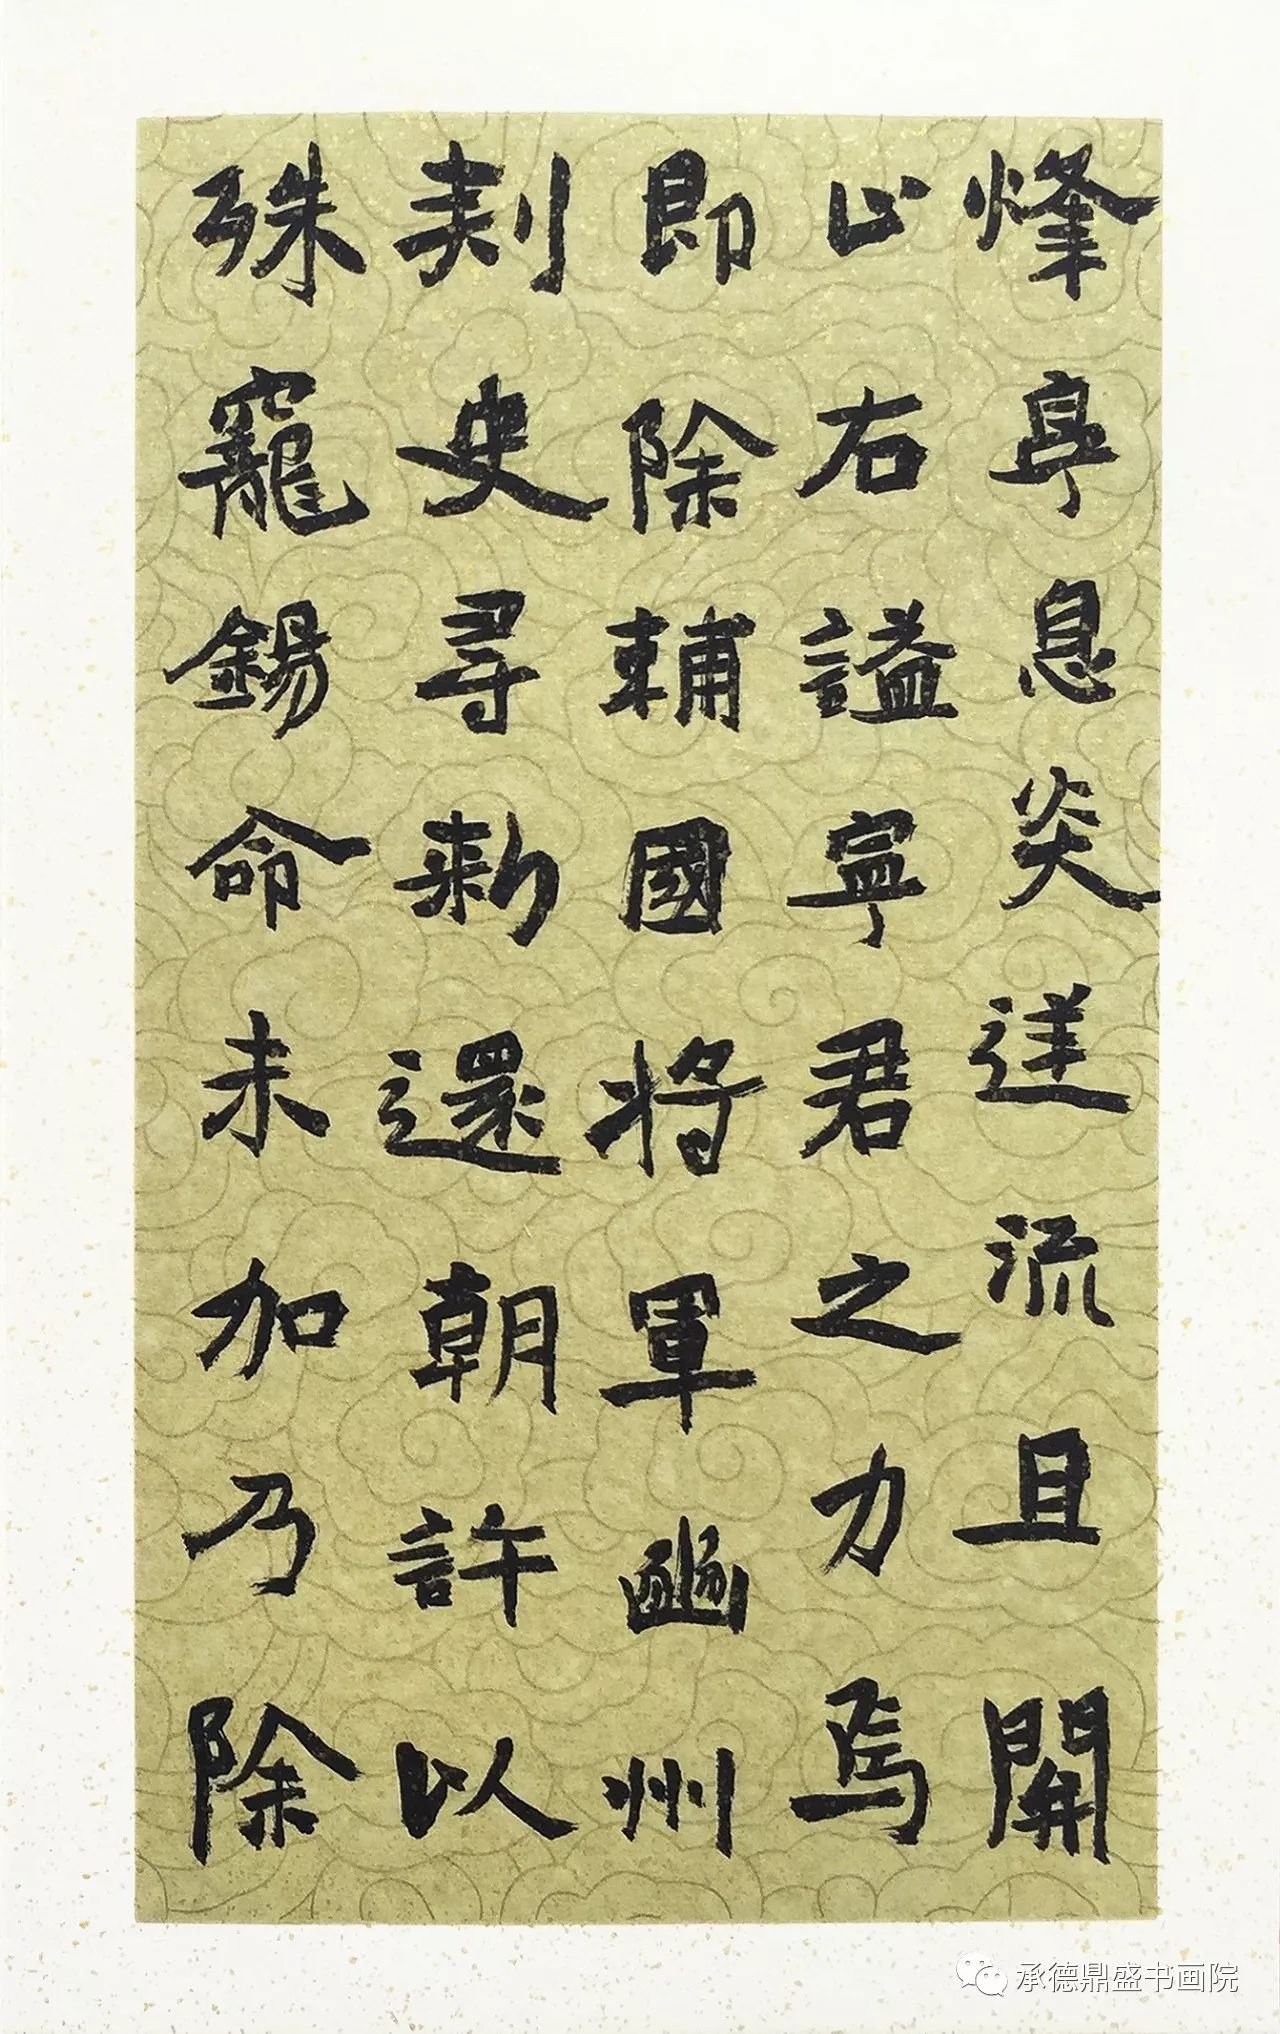 烽亭息炎送流且開
山右謐寧君之力焉
即除輔國将軍豳州
刺史尋勑還朝許以
殊寵錫命未加乃除
承德鼎盛书画院